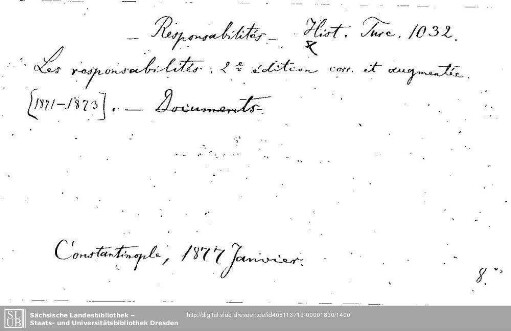 — Responsabilités — Hist. Turc. 1032.
x
Les responsabilités. 2e édition corr. et augmentée.
[1871–1873]. — Documents.
Constantinople, 1877 Janvier.
8.°
SLUB
Sächsische Landesbibliothek –
Staats- und Universitätsbibliothek Dresden